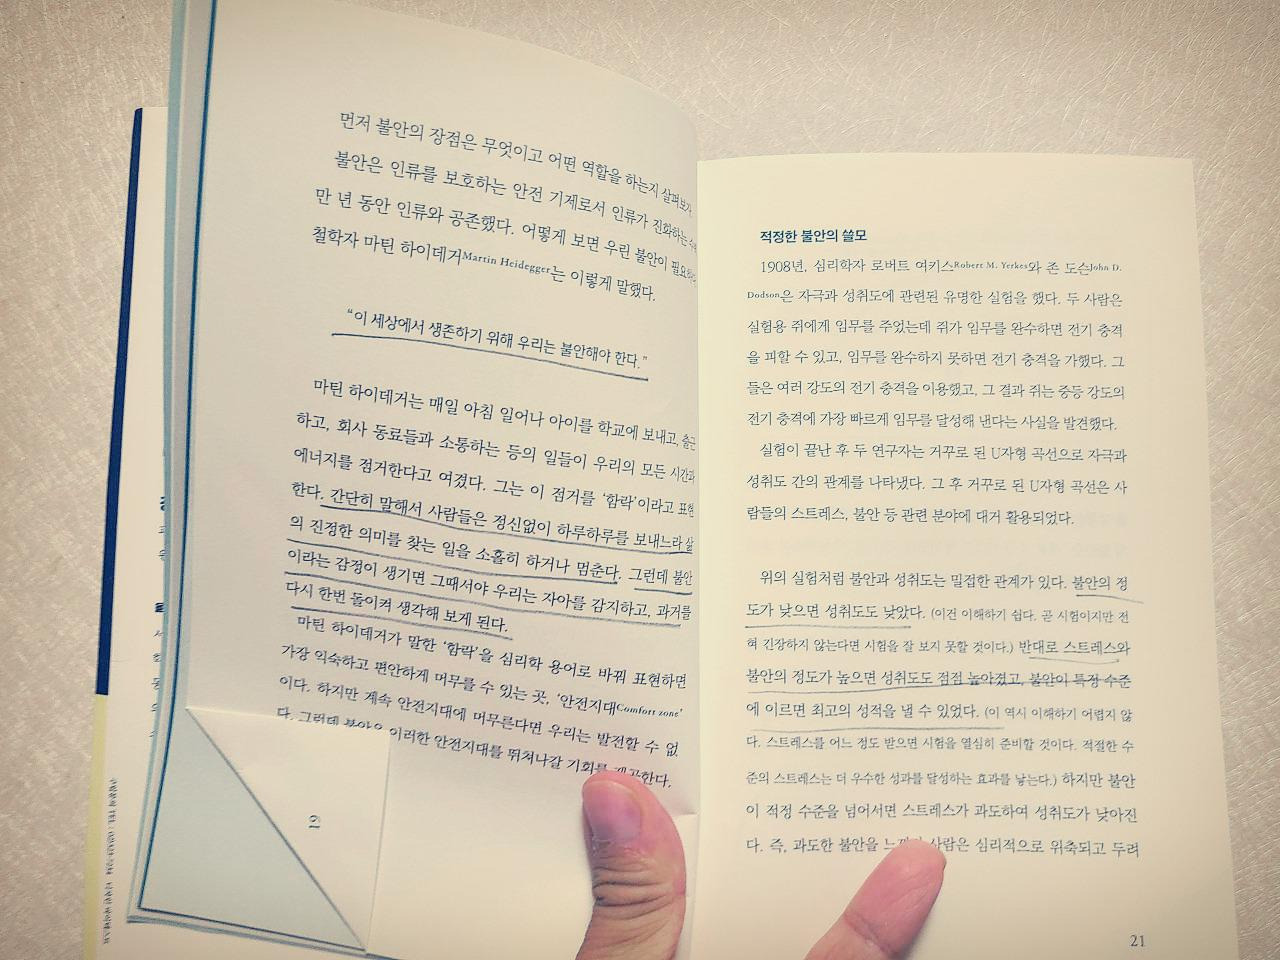 먼저 불안의 장점은 무엇이고 어떤 역할을 하는지 살펴보자.
불안은 인류를 보호하는 안전 기제로서 인류가 진화하는
만 년 동안 인류와 공존했다. 어떻게 보면 우린 불안이
철학자 마틴 하이데거Martin Heidegger는 이렇게 말했다.
“이 세상에서 생존하기 위해 우리는 불안해야 한다.”
마틴 하이데거는 매일 아침 일어나 아이를 학교에 보내고, 출근
하고, 회사 동료들과 소통하는 등의 일들이 우리의 모든 시간과
에너지를 점거한다고 여겼다. 그는 이 점거를 ‘함락’이라고 표현
한다. 간단히 말해서 사람들은 정신없이 하루하루를 보내느라 삶
의 진정한 의미를 찾는 일을 소홀히 하거나 멈춘다. 그런데 불안
이라는 감정이 생기면 그때서야 우리는 자아를 감지하고, 과거를
다시 한번 돌이켜 생각해 보게 된다.
마틴 하이데거가 말한 ‘함락’을 심리학 용어로 바꿔 표현하면
가장 익숙하고 편안하게 머무를 수 있는 곳, ‘안전지대Comfort zone’
이다. 하지만 계속 안전지대에 머무른다면 우리는 발전할 수 없
다. 그런데 불안은 이러한 안전지대를 뛰쳐나갈 기회를 제공한다.
19
적정한 불안의 쓸모
1908년, 심리학자 로버트 여키스Robert M. Yerkes와 존 도슨John D.
Dodson은 자극과 성취도에 관련된 유명한 실험을 했다. 두 사람은
실험용 쥐에게 임무를 주었는데 쥐가 임무를 완수하면 전기 충격
을 피할 수 있고, 임무를 완수하지 못하면 전기 충격을 가했다. 그
들은 여러 강도의 전기 충격을 이용했고, 그 결과 쥐는 중등 강도의
전기 충격에 가장 빠르게 임무를 달성해 낸다는 사실을 발견했다.
실험이 끝난 후 두 연구자는 거꾸로 된 U자형 곡선으로 자극과
성취도 간의 관계를 나타냈다. 그 후 거꾸로 된 U자형 곡선은 사
람들의 스트레스, 불안 등 관련 분야에 대거 활용되었다.
위의 실험처럼 불안과 성취도는 밀접한 관계가 있다. 불안의 정
도가 낮으면 성취도도 낮았다. (이건 이해하기 쉽다. 곧 시험이지만 전
혀 긴장하지 않는다면 시험을 잘 보지 못할 것이다.) 반대로 스트레스와
불안의 정도가 높으면 성취도도 점점 높아졌고, 불안이 특정 수준
에 이르면 최고의 성적을 낼 수 있었다. (이 역시 이해하기 어렵지 않
다. 스트레스를 어느 정도 받으면 시험을 열심히 준비할 것이다. 적절한 수
준의 스트레스는 더 우수한 성과를 달성하는 효과를 낳는다.) 하지만 불안
이 적정 수준을 넘어서면 스트레스가 과도하여 성취도가 낮아진
다. 즉, 과도한 불안을 사람은 심리적으로 위축되고 두려
21